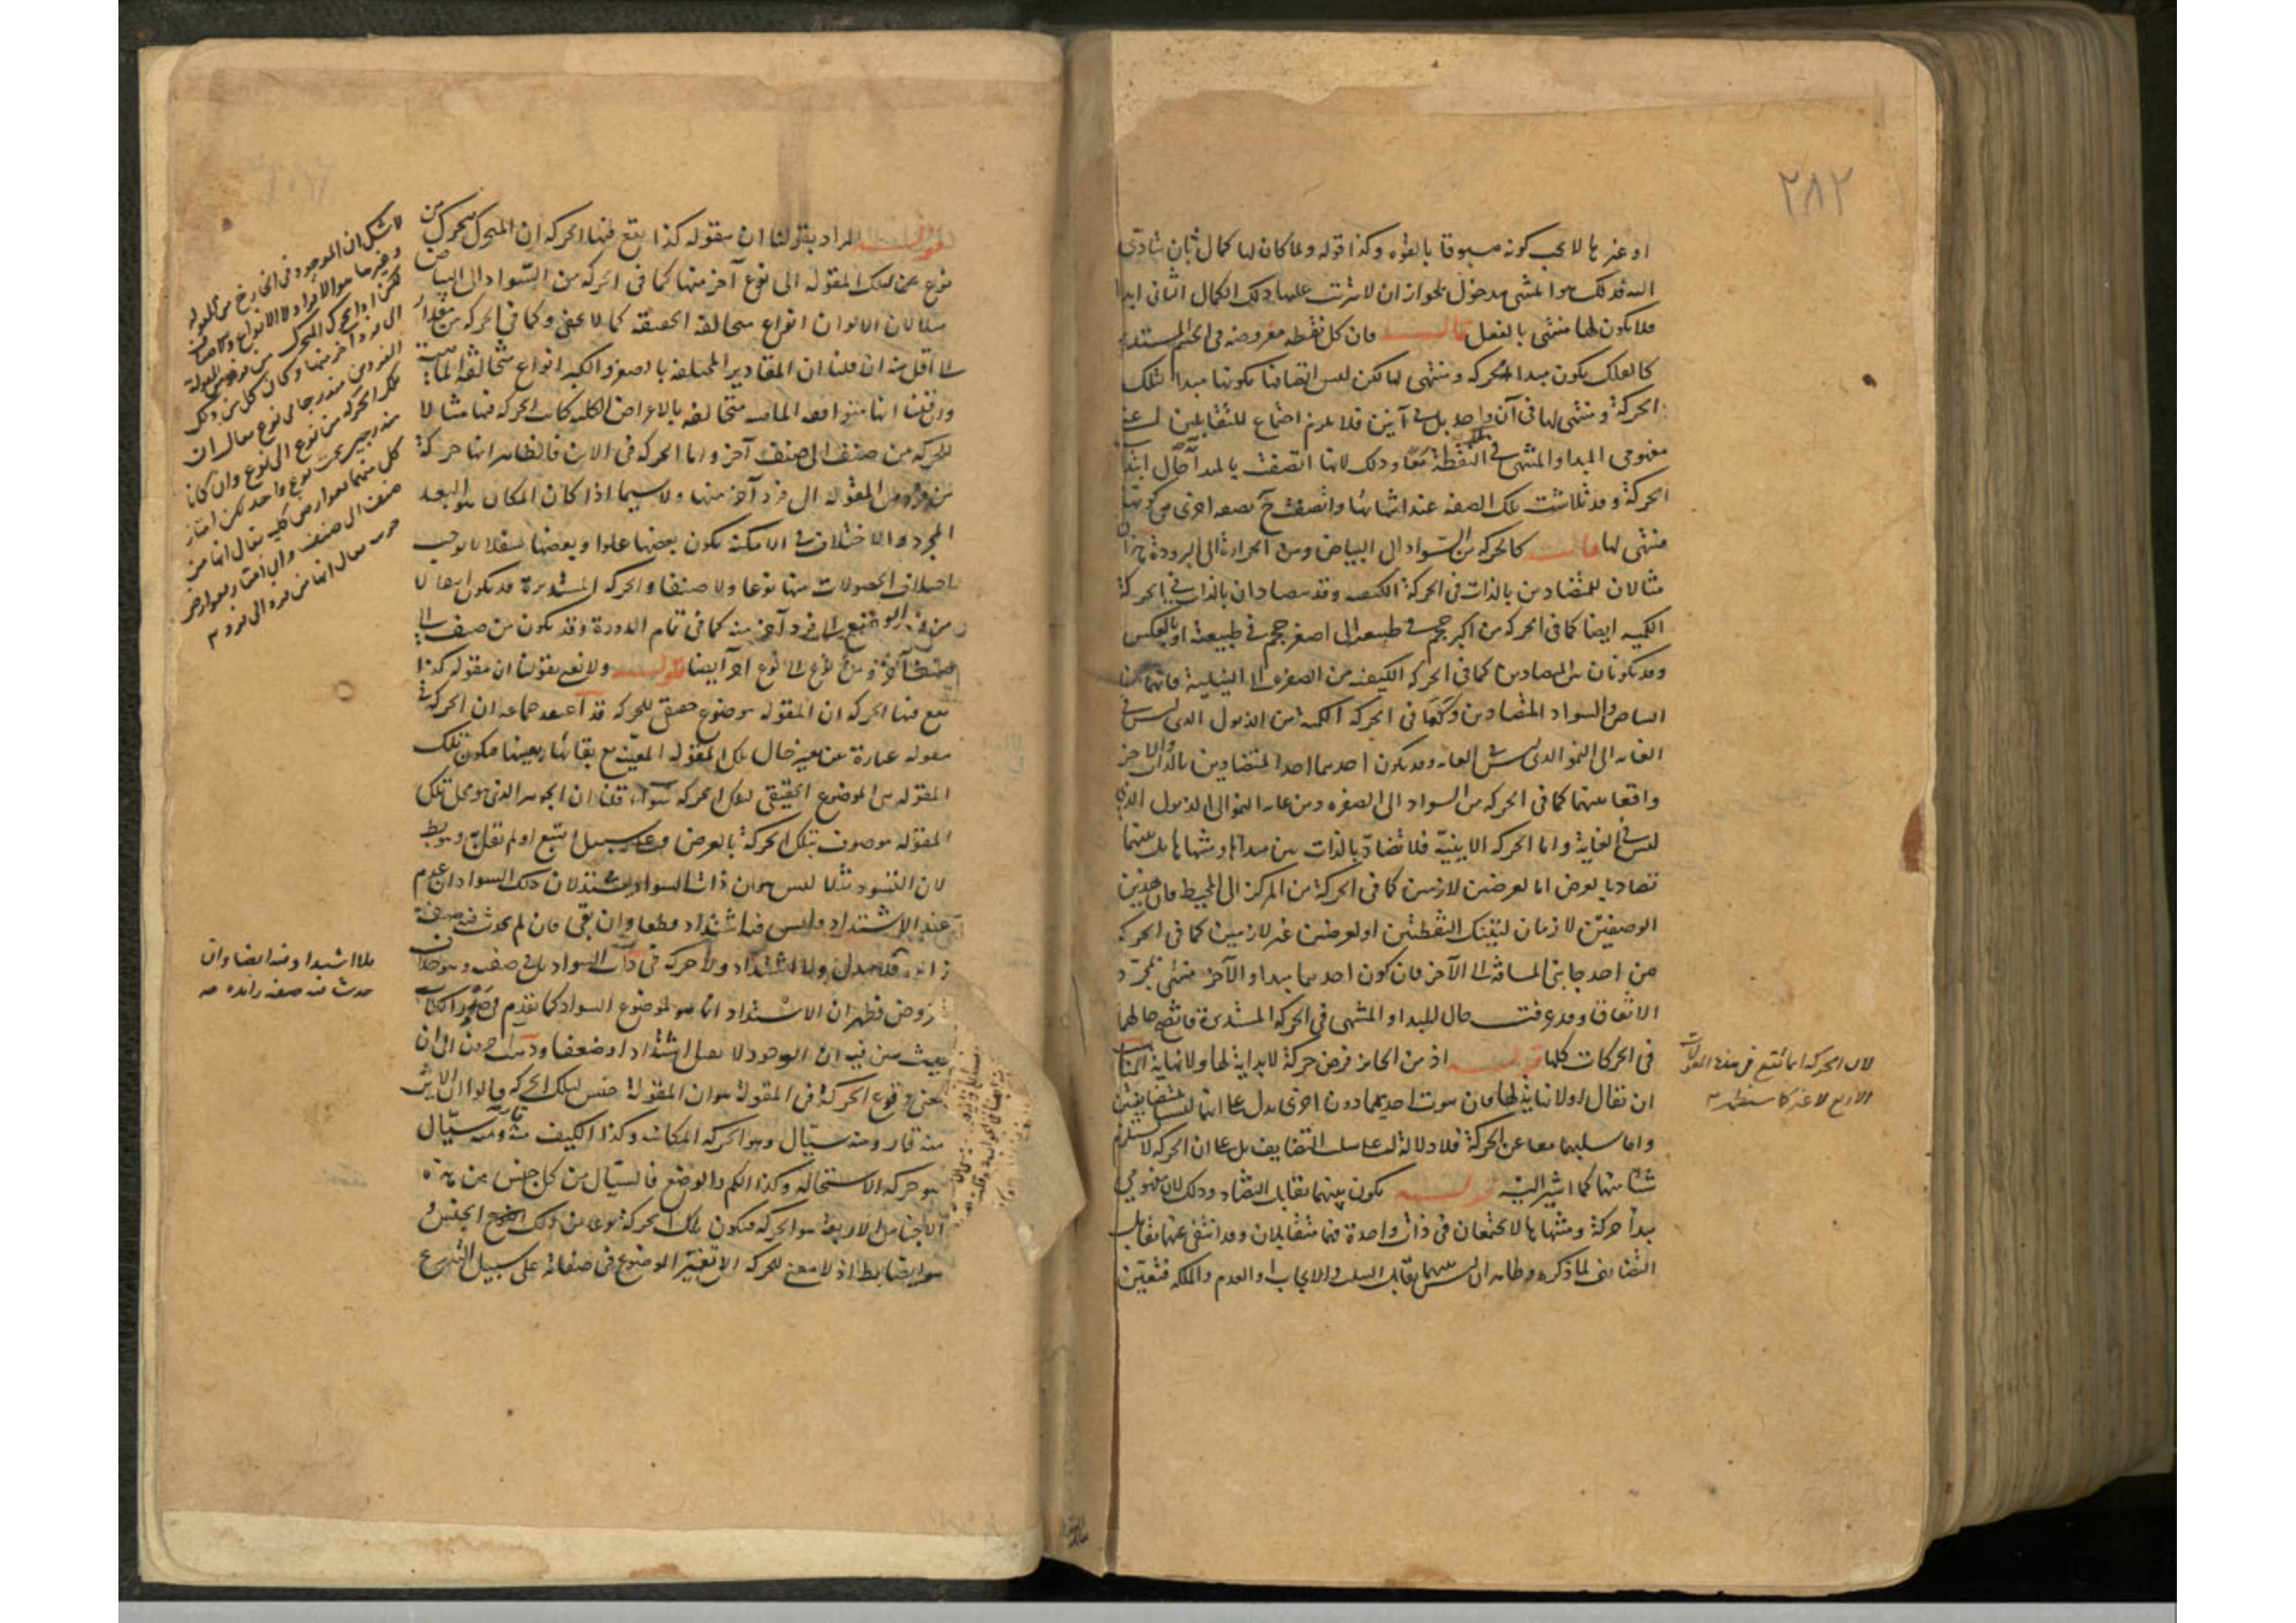 ٢٨٢
او غيرها لا يجب كونه مسبوقا بالقوة وكذا قوله ولما كان لها كمال ثان يتأدى
اليه فذلك هو المنتهى مدخول لجواز ان لا يترتب عليها ذلك الكمال الثاني ابدا
فلا يكون لها منتهى بالفعل قال فان كل نقطة مفروضة في الجسم المستدير
كالفلك يكون مبدا لحركة ومنتهى لها لكن ليس اتصافها بكونها مبدا لتلك
الحركة ومنتهى لها في آن واحد بل في آنين فلا يلزم اجتماع المتقابلين
مفهومي المبدا والمنتهى في النقطة معا وذلك لانها اتصفت بالمبدأ حال ابتدا
الحركة وقد تلاشت تلك الصفة عند انتهائها واتصفت ح بصفة اخرى هي كونها
منتهى لها قال كالحركة من السواد الى البياض ومن الحرارة الى البرودة
مثالان للمتضادين بالذات في الحركة الكيفية وقد يتضادان بالذات في الحركة
الكمية ايضا كما في الحركة من اكبر حجم في طبيعته الى اصغر حجم في طبيعته او بالعكس
وقد يكونان بين المتضادين كما في الحركة الكيفية من الصفرة الى النيلية فانهما بين
البياض والسواد المتضادين وكما في الحركة الكمية من الذبول الذي ليس في
الغاية الى النمو الذي ليس في الغاية وقد يكون احدهما احد المتضادين بالذات والآخر
واقعا بينهما كما في الحركة من السواد الى الصفرة ومن غاية النمو الى الذبول الذي
ليس في الغاية واما الحركة الاينية فلا تضاد بالذات بين مبدائها ومنتهاها بل بينهما
تضاد بالعرض اما لعرضين لازمين كما في الحركة من المركز الى المحيط فان هذين
الوصفين لازمان لتينك النقطتين او لعرضين غير لازمين كما في الحركة
من احد جانبي المسافة الى الآخر فان كون احدهما مبدا والآخر منتهى لمجرد
الاتفاق وقد عرفت حال المبدا والمنتهى في الحركة المستديرة فاتضح حالهما
في الحركات كلها قوله اذ من الجائز فرض حركة لا بداية لها ولا نهاية
ان يقال او لا نهاية لها فان ثبوت احديهما دون اخرى يدل على انهما ليسا متضايفين
واما سلبهما معا عن الحركة فلا دلالة له على سلب التضايف بل على ان الحركة لا تستلزم
شيئا منهما كما اشير اليه قوله يكون بينهما تقابل التضاد وذلك لان مفهومي
مبدأ حركة ومنتهاها لا يجتمعان في ذات واحدة فهما متقابلان وقد انتفى عنهما تقابل
التضايف لما ذكره وظاهر ان ليس بينهما تقابل السلب والايجاب او العدم والملكة فتعين
لان الحركة انما تقع في هذه المقولات
الاربع لا غير كما ستظهر
قوله المراد بقولنا ان مقولة كذا يقع فيها الحركة ان المتحرك يتحرك من
نوع من تلك المقولة الى نوع آخر منها كما في الحركة من السواد الى البياض
مثلا لان الالوان انواع متخالفة الحقيقة كما لا يخفى وكما في الحركة من مقدار
الى اقل منه ان قلنا ان المقادير المختلفة بالصغر والكبر انواع متخالفة الماهية
وان قلنا انها متوافقة الماهية متخالفة بالاعراض الكلية كانت الحركة فيها مثالا
للحركة من صنف الى صنف آخر واما الحركة في الاين فالظاهر انها حركة
من فرد من المقولة الى فرد آخر منها ولا سيما اذا كان المكان هو البعد
المجرد والاختلاف في الامكنة بكون بعضها علوا وبعضها سفلا لا يوجب
اختلاف الحصولات فيها نوعا ولا صنفا والحركة المستديرة قد يكون انتقالا
من فرد الوضع الى فرد آخر منه كما في تمام الدورة وقد يكون من صنف الى
صنف آخر ومن نوع الى نوع آخر ايضا قوله ولا نعني بقولنا ان مقولة كذا
يقع فيها الحركة ان المقولة موضوع حقيقي للحركة قد اعتقد جماعة ان الحركة في
مقولة عبارة عن تغير حال تلك المقولة المعينة مع بقائها بعينها فيكون تلك
المقولة هي الموضوع الحقيقي لتلك الحركة سواء قلنا ان الجوهر الذي هو محل تلك
المقولة موصوف بتلك الحركة بالعرض وعلى سبيل التبع او لم نقل وهو بط
لان التسود مثلا ليس هو ان ذات السواد يشتد لان ذلك السواد ان عدم
عند الاشتداد فليس فيه اشتداد قطعا وان بقي فان لم يحدث فيه صفة
زائدة فلا تبدل ولا اشتداد ولا حركة في ذات السواد بل في صفته وهو خلاف
المفروض فظهر ان الاشتداد انما هو لموضوع السواد كما تقدم في صدر الكتاب
حيث بين فيه ان الوجود لا يقبل اشتدادا وضعفا وذهب آخرون الى ان
معنى وقوع الحركة في المقولة هو ان المقولة جنس لتلك الحركة قالوا ان الاين
منه قار ومنه سيال وهو الحركة المكانية وكذا الكيف منه قار ومنه سيال
هو حركة الاستحالة وكذا الكم والوضع فالسيال من كل جنس من هذه
الاجناس الاربعة هو الحركة فيكون تلك الحركة نوعا من ذلك الجنس و
هو ايضا بط اذ لا معنى للحركة الا تغير الموضوع في صفاته على سبيل التدريج
لا شك ان الموجود في الخارج من المقولة
وغيرها هو الافراد لا الانواع والاصناف
لكن اذا تحرك المتحرك من فرد من المقولة
الى فرد آخر منها وكان كل من ذلك
الفردين مندرجا في نوع يقال ان
تلك الحركة من نوع الى نوع وان كانا
مندرجين تحت نوع واحد لكن امتاز
كل منهما بعوارض كلية يقال انها من
صنف الى صنف وان امتاز بعوارض
يقال انها من فرد الى فرد
فلا اشتداد فيه ايضا وان
حدث فيه صفة زائدة